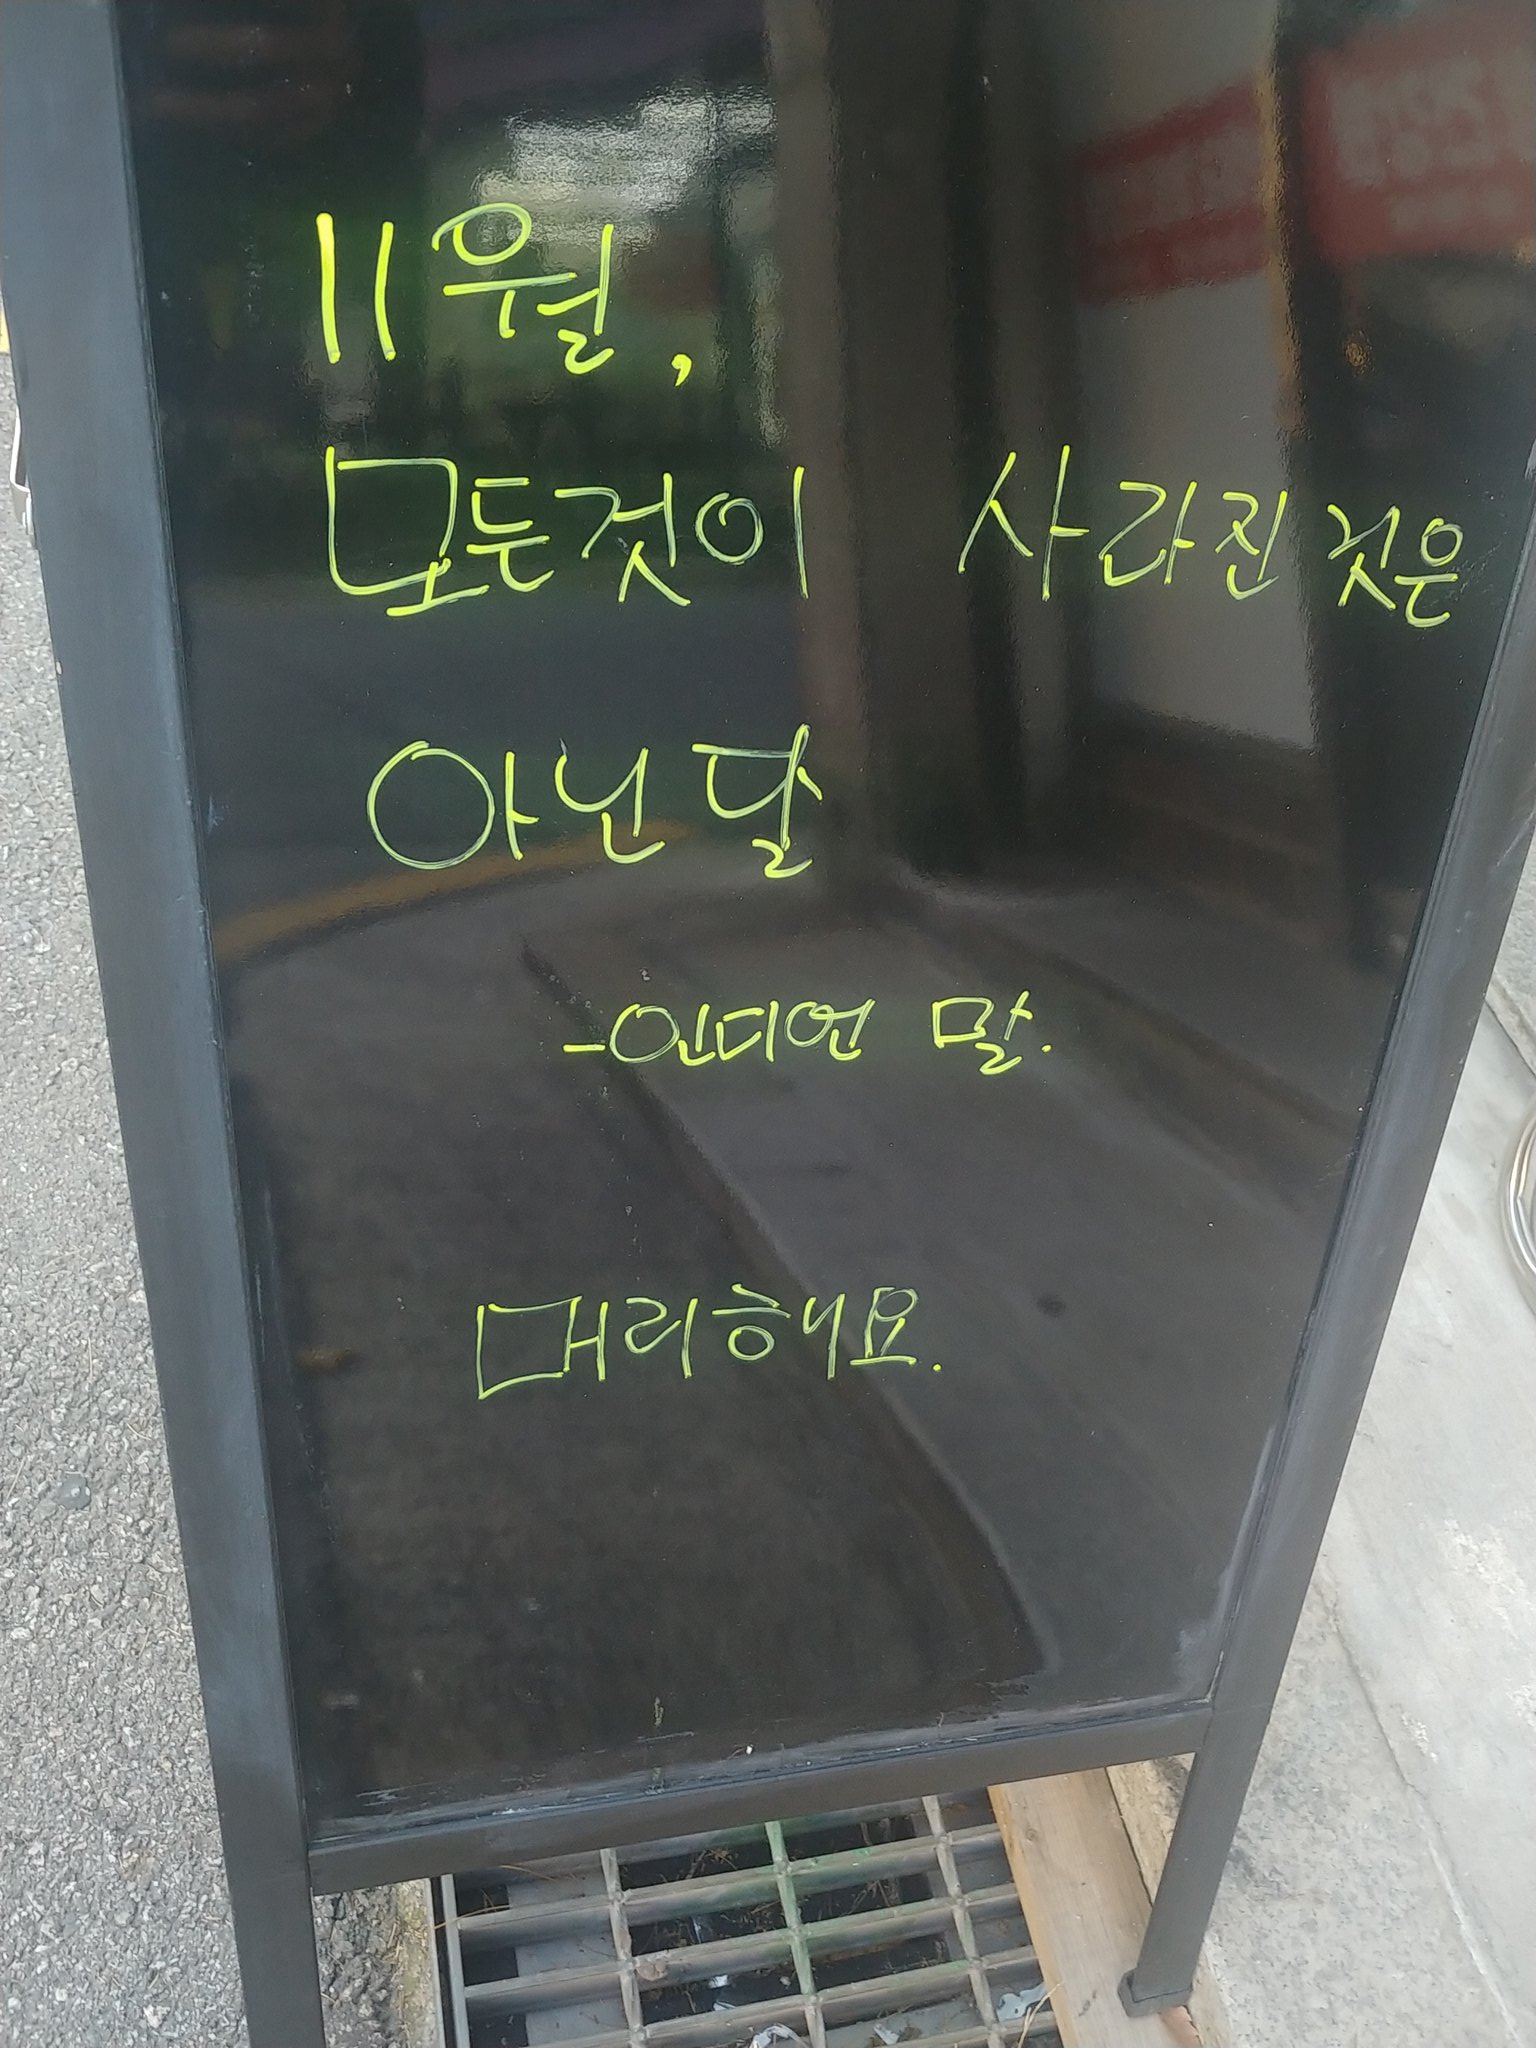 11월,
모든것이 사라진것은
아닌달
-인디언 말.
매리해요.